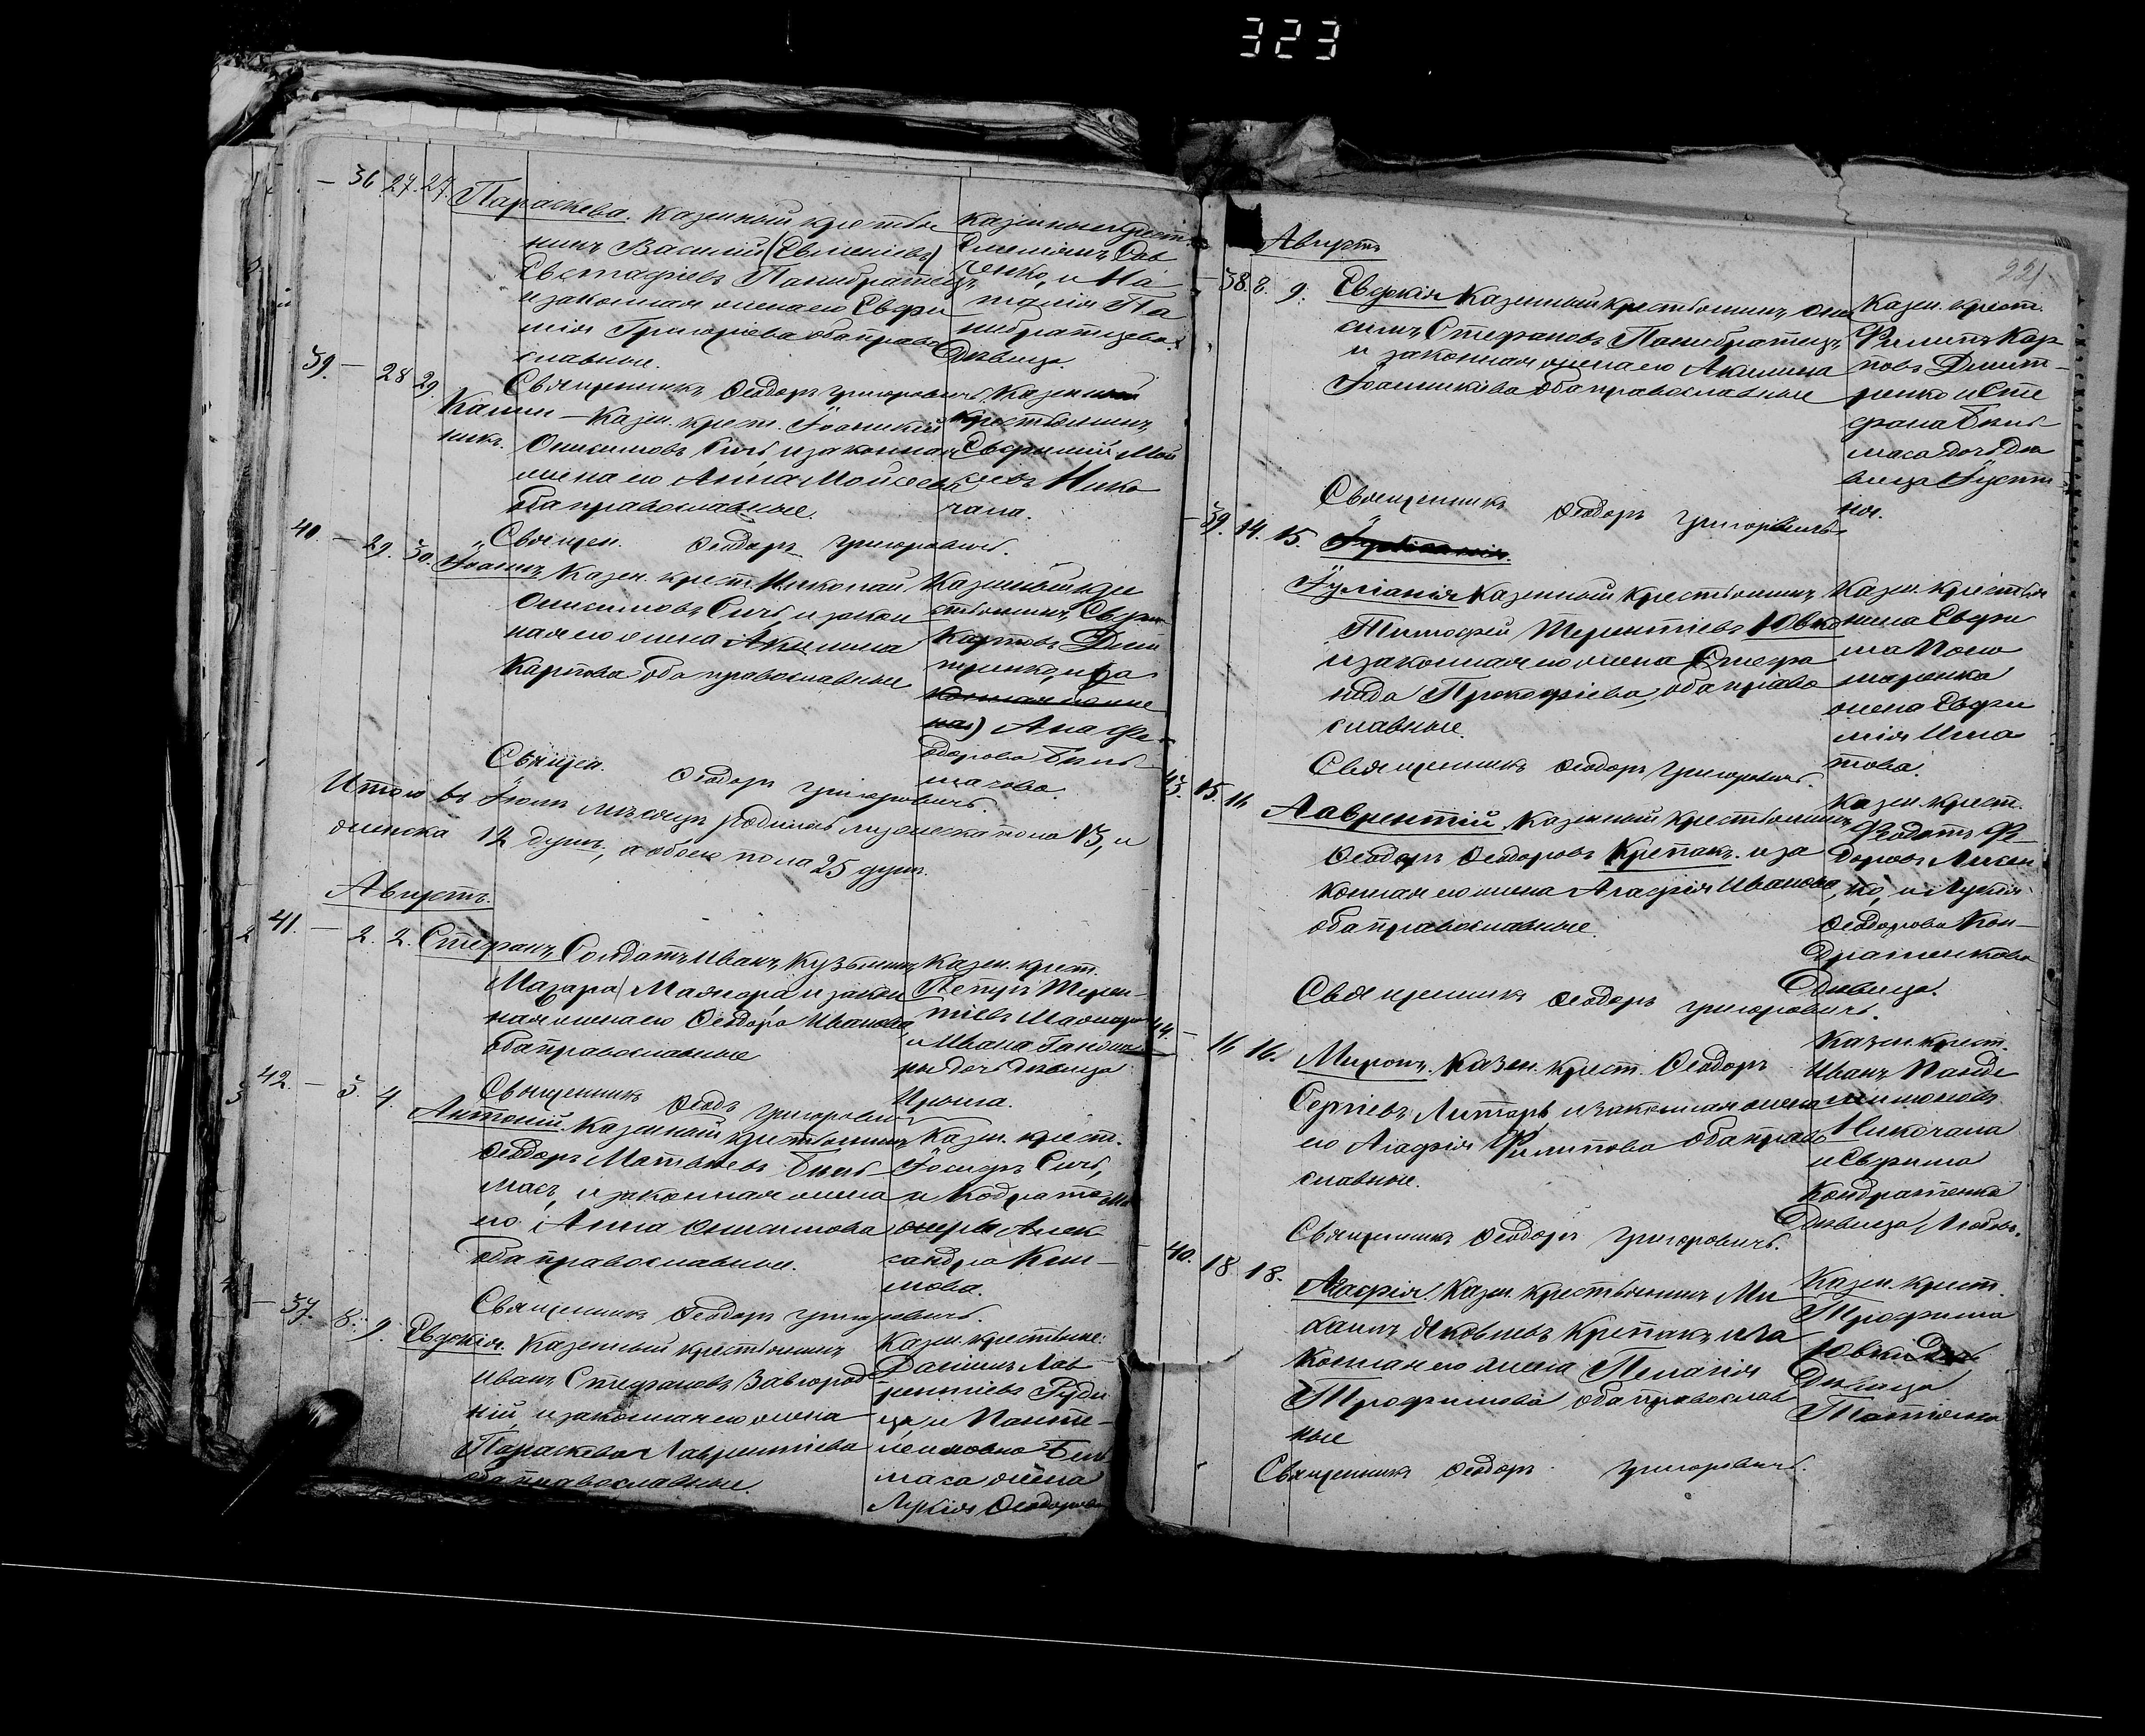 323
— 36 27. 27. Параскева. Казенный крестья
нинъ Василій (Евменіевъ)
Евстафіевъ Панибратецъ
и законная жена его Евфи
мія Григоріева оба право
славные.
казенные крест.
Емеліянъ Сав
ченко, и На
талія Па
нибратцева
Дѣвица.
Священникъ Ѳеодоръ Григоровичъ.
39. — 28 29. Калли-
никъ.
Казен. крест. Іоанникій
Онисимовъ Сичъ, и законная
жена его Анна Моисеева
оба православные.
Казенный
крестьянинъ
Евфимій Мой
сеевъ Нико
чала.
Священ. Ѳеодоръ Григоровичъ.
40. — 29. 30. Іоаннъ, Казен. крест. Николай
Онисимовъ Сичъ, и закон
ная его жена Акилина
Карпова оба православные
Казенный кре
стьянинъ, Евфи
Карповъ Дми
тренко, и за
конная его же
на) Анна Фе
дорова Биб
Священ. Ѳеодоръ Григоровичъ.
Итого въ Іюлѣ мѣсяцѣ родилось мужеска пола 13, и
женска 12 душъ, а обоего пола 25 душъ.
Августъ.
41. — 2. 2. Стефанъ, Солдатъ Иванъ Кузьминъ
Мазара / Маяхора, и закон
ная жена его Ѳеодора Иванова,
оба православные
Казен. крест.
Петръ Терен-
тіевъ
и Ивана
ны дочь дѣвица
Ирина.
Священникъ Ѳеод. Григоровичъ
42. — 3. 4. Антоній. Казенный крестьянинъ
Ѳеодоръ Матвѣевъ Биб
масъ, и законная жена
его Анна Онисимова
оба православные.
Казен. крест.
Іосифъ Сичъ,
и Кодрата
Алек
сандра Кли-
мова.
Священникъ Ѳеодоръ Григоровичъ.
— 37. 8. 9. Евдокія. Казенный крестьянинъ
Иванъ Стефановъ Завгород
ній, и законная его жена
Параскева Лаврентіева
оба православные.
Казен. крестьяне
Даніилъ Лав
рентіевъ Руди
ца и Панте-
леимовна Биб
маса жена
Лукія Ѳеодорова
22
Августъ
— 38. 8. 9. Евдокія Казенный крестьянинъ Они
симъ Стефановъ Панибратецъ,
и законная жена его Акилина
Іоанникіева оба православные
Казен. крест.
Филипъ Кар
повъ Дмит-
ренко и Сте
фана Биб-
маса дочь дѣ
вица Іусти
на.
Священникъ Ѳеодоръ Григоровичъ.
— 39. 14. 15. Іуліанія.
Іуліанія Казенный крестьянинъ
Тимофей Терентіевъ Ювко
и законная его жена Стефа
нида Прокофіева, оба право
славные.
Казен. крестья
нина Евфи
ма Поно
маренка
жена Евфи
мія Игна
това.
Священникъ Ѳеодоръ Григоровичъ.
43. — 15. 16 Лаврентій. Казенный крестьянинъ
Ѳеодоръ Ѳеодоровъ Крепакъ. и за
конная его жена Агафія Иванова,
оба православные.
Казен. крест.
Федотъ Фе
доровъ Лисен
ко, и Лукія
Ѳеодорова Кон-
дратенкова
Дѣвица.
Священникъ Ѳеодоръ Григоровичъ.
44. — 16 16. Миронъ. Казен. крест. Ѳеодоръ
Сергіевъ Литаръ и законная жена
его Агафія Филипова оба право
славные.
Казен. крест.
Иванъ Панте
лимоновъ
Никочала
и Евфима
Кондратенка
Дѣвица Любовь.
Священникъ Ѳеодоръ Григоровичъ.
— 40. 18 18. Агафія. Казен. крестьянинъ Ми
хаилъ Яковлевъ Крепакъ, и за
конная его жена Пелагія
Трофимова, оба православ
ные
Казен. крест.
Трофима
Ювки
Дѣвица
Татіяна
Священникъ Ѳеодоръ Григоровичъ.